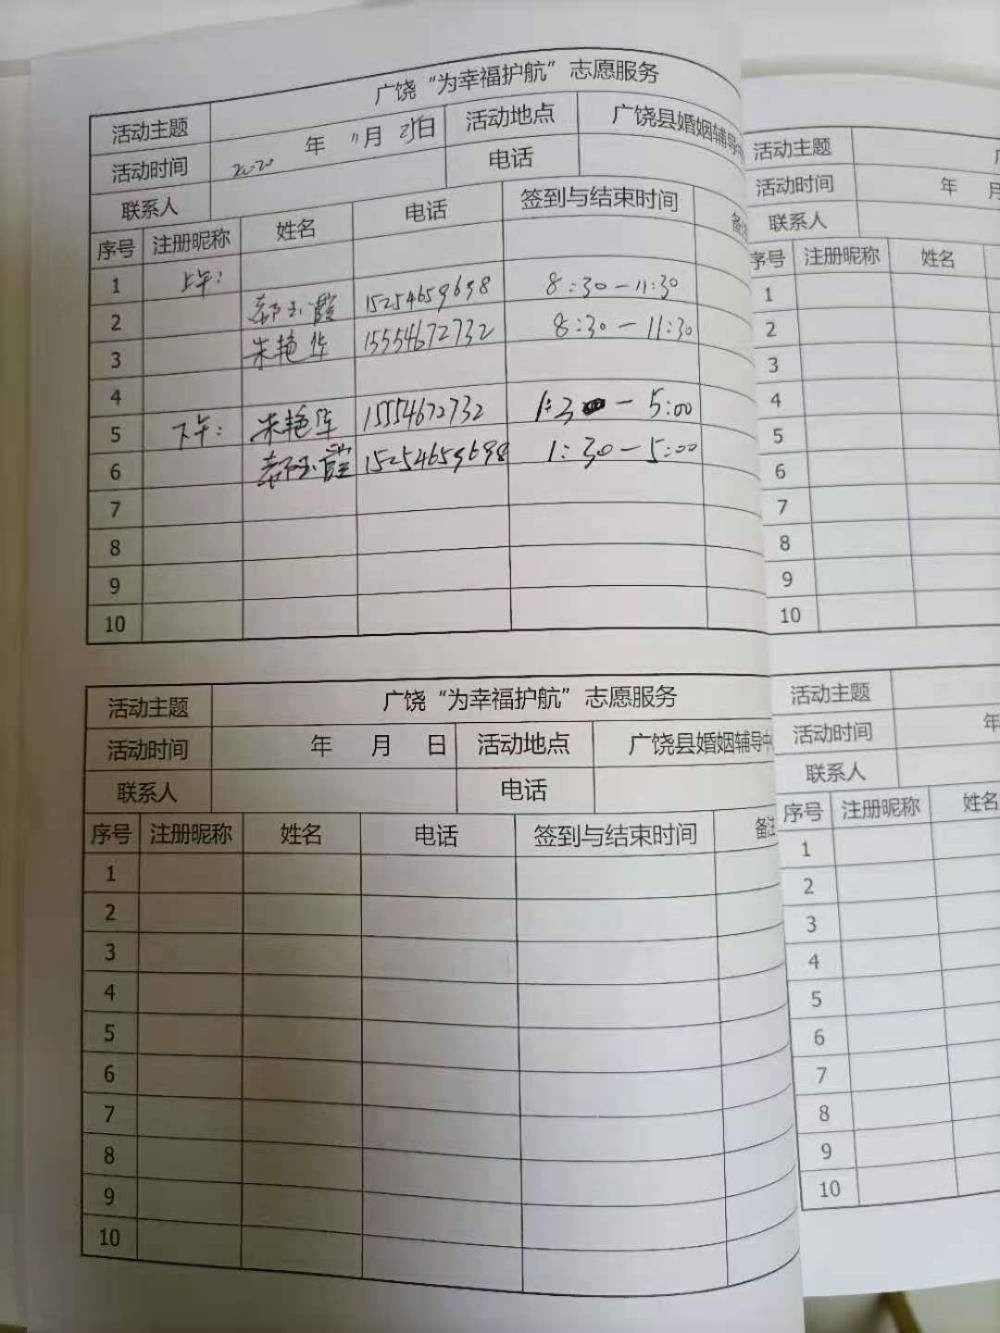 广饶“为幸福护航”志愿服务
活动主题
活动时间 2020 年 11月 日 活动地点 广饶县婚姻辅导中
联系人 电话
序号 注册昵称 姓名 电话 签到与结束时间 备注
1 上午：
2 郭玉霞 15254659698 8:30—11:30
3 朱艳华 15554672732 8:30—11:30
4
5 下午： 朱艳华 15554672732 1:30—5:00
6 郭玉霞 15254659698 1:30—5:00
7
8
9
10
活动主题 广饶“为幸福护航”志愿服务
活动时间 年 月 日 活动地点 广饶县婚姻辅导中
联系人 电话
序号 注册昵称 姓名 电话 签到与结束时间 备注
1
2
3
4
5
6
7
8
9
10
活动主题
活动时间 年 月
联系人
序号 注册昵称 姓名
1
2
3
4
5
6
7
8
9
10
活动主题
活动时间 年
联系人
序号 注册昵称 姓名
1
2
3
4
5
6
7
8
9
10